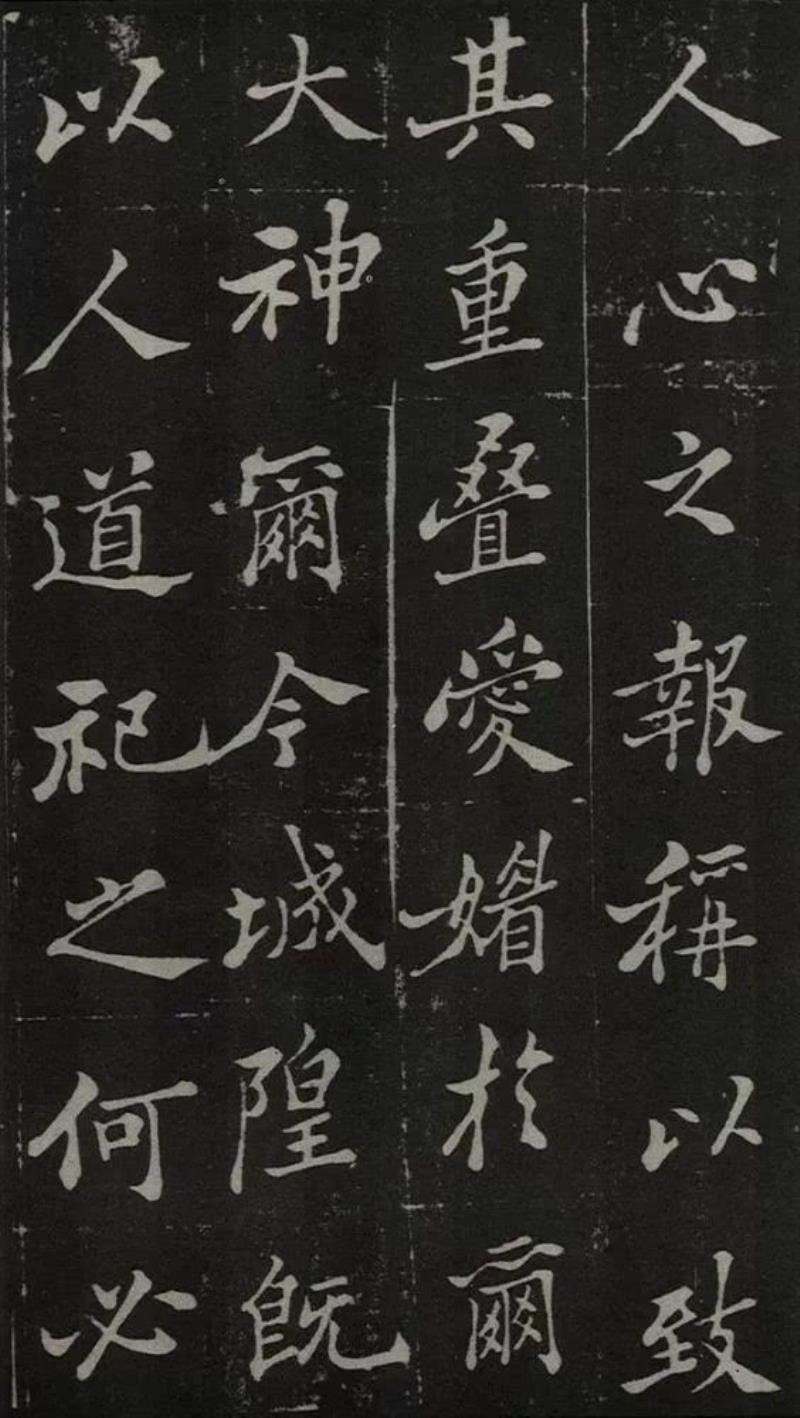 人心之報稱以致
其重叠愛媚於爾
大神爾今城隍既
以人道祀之何必